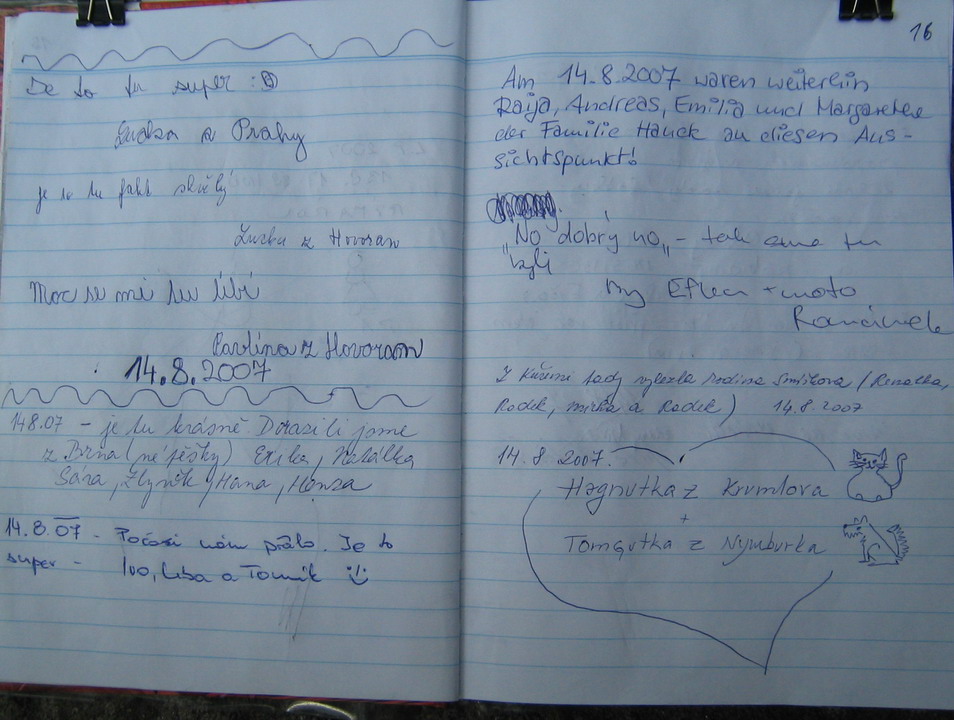 Je to tu super :
z Prahy
je to tu fakt skvělý
Lucka z Hovoran
Moc se mi tu líbí
Pavlína z Hovoran
14.8.2007
14.8.07 - je tu krásně Dorazili jsme
z Brna (ne pěšky) Erika,
Sára, Zbyněk, Hana, Honza
14.8.07 - Počasí nám přálo. Je to
super - Ivo, Liba a Tomík
16
Am 14.8.2007 waren weiterhin
Raija, Andreas, Emilia und Margarethe
der Familie Hauck an diesen Aus-
sichtspunkt!
„No dobrý no„ - tak sme tu
byli
by +moto
z
tady vylezla rodina Smíškova (Renatka,
Radek, Mirka a Radek) 14.8.2007
14.8.2007.
z Krumlova
+
z Nymburka